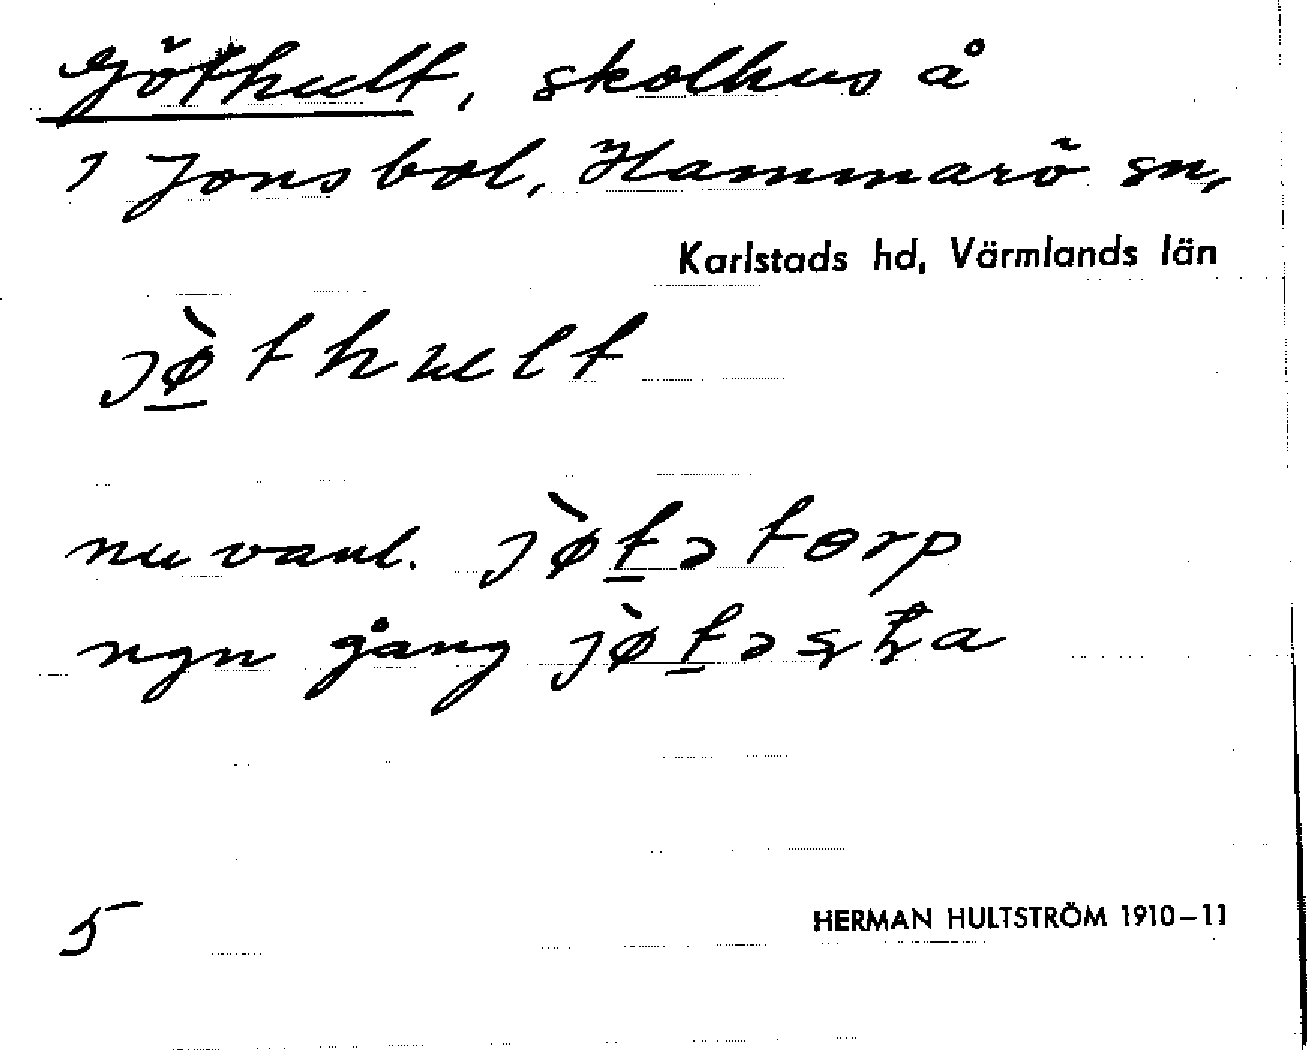 Göthult, skolhus å
1 Jonsbol, Hammarö sn,
Karlstads hd, Värmlands län
jø̀thult
nu vanl. jø̀tətorp
ngn gång jø̀təsʈa
5
HERMAN HULTSTRÖM 1910–11